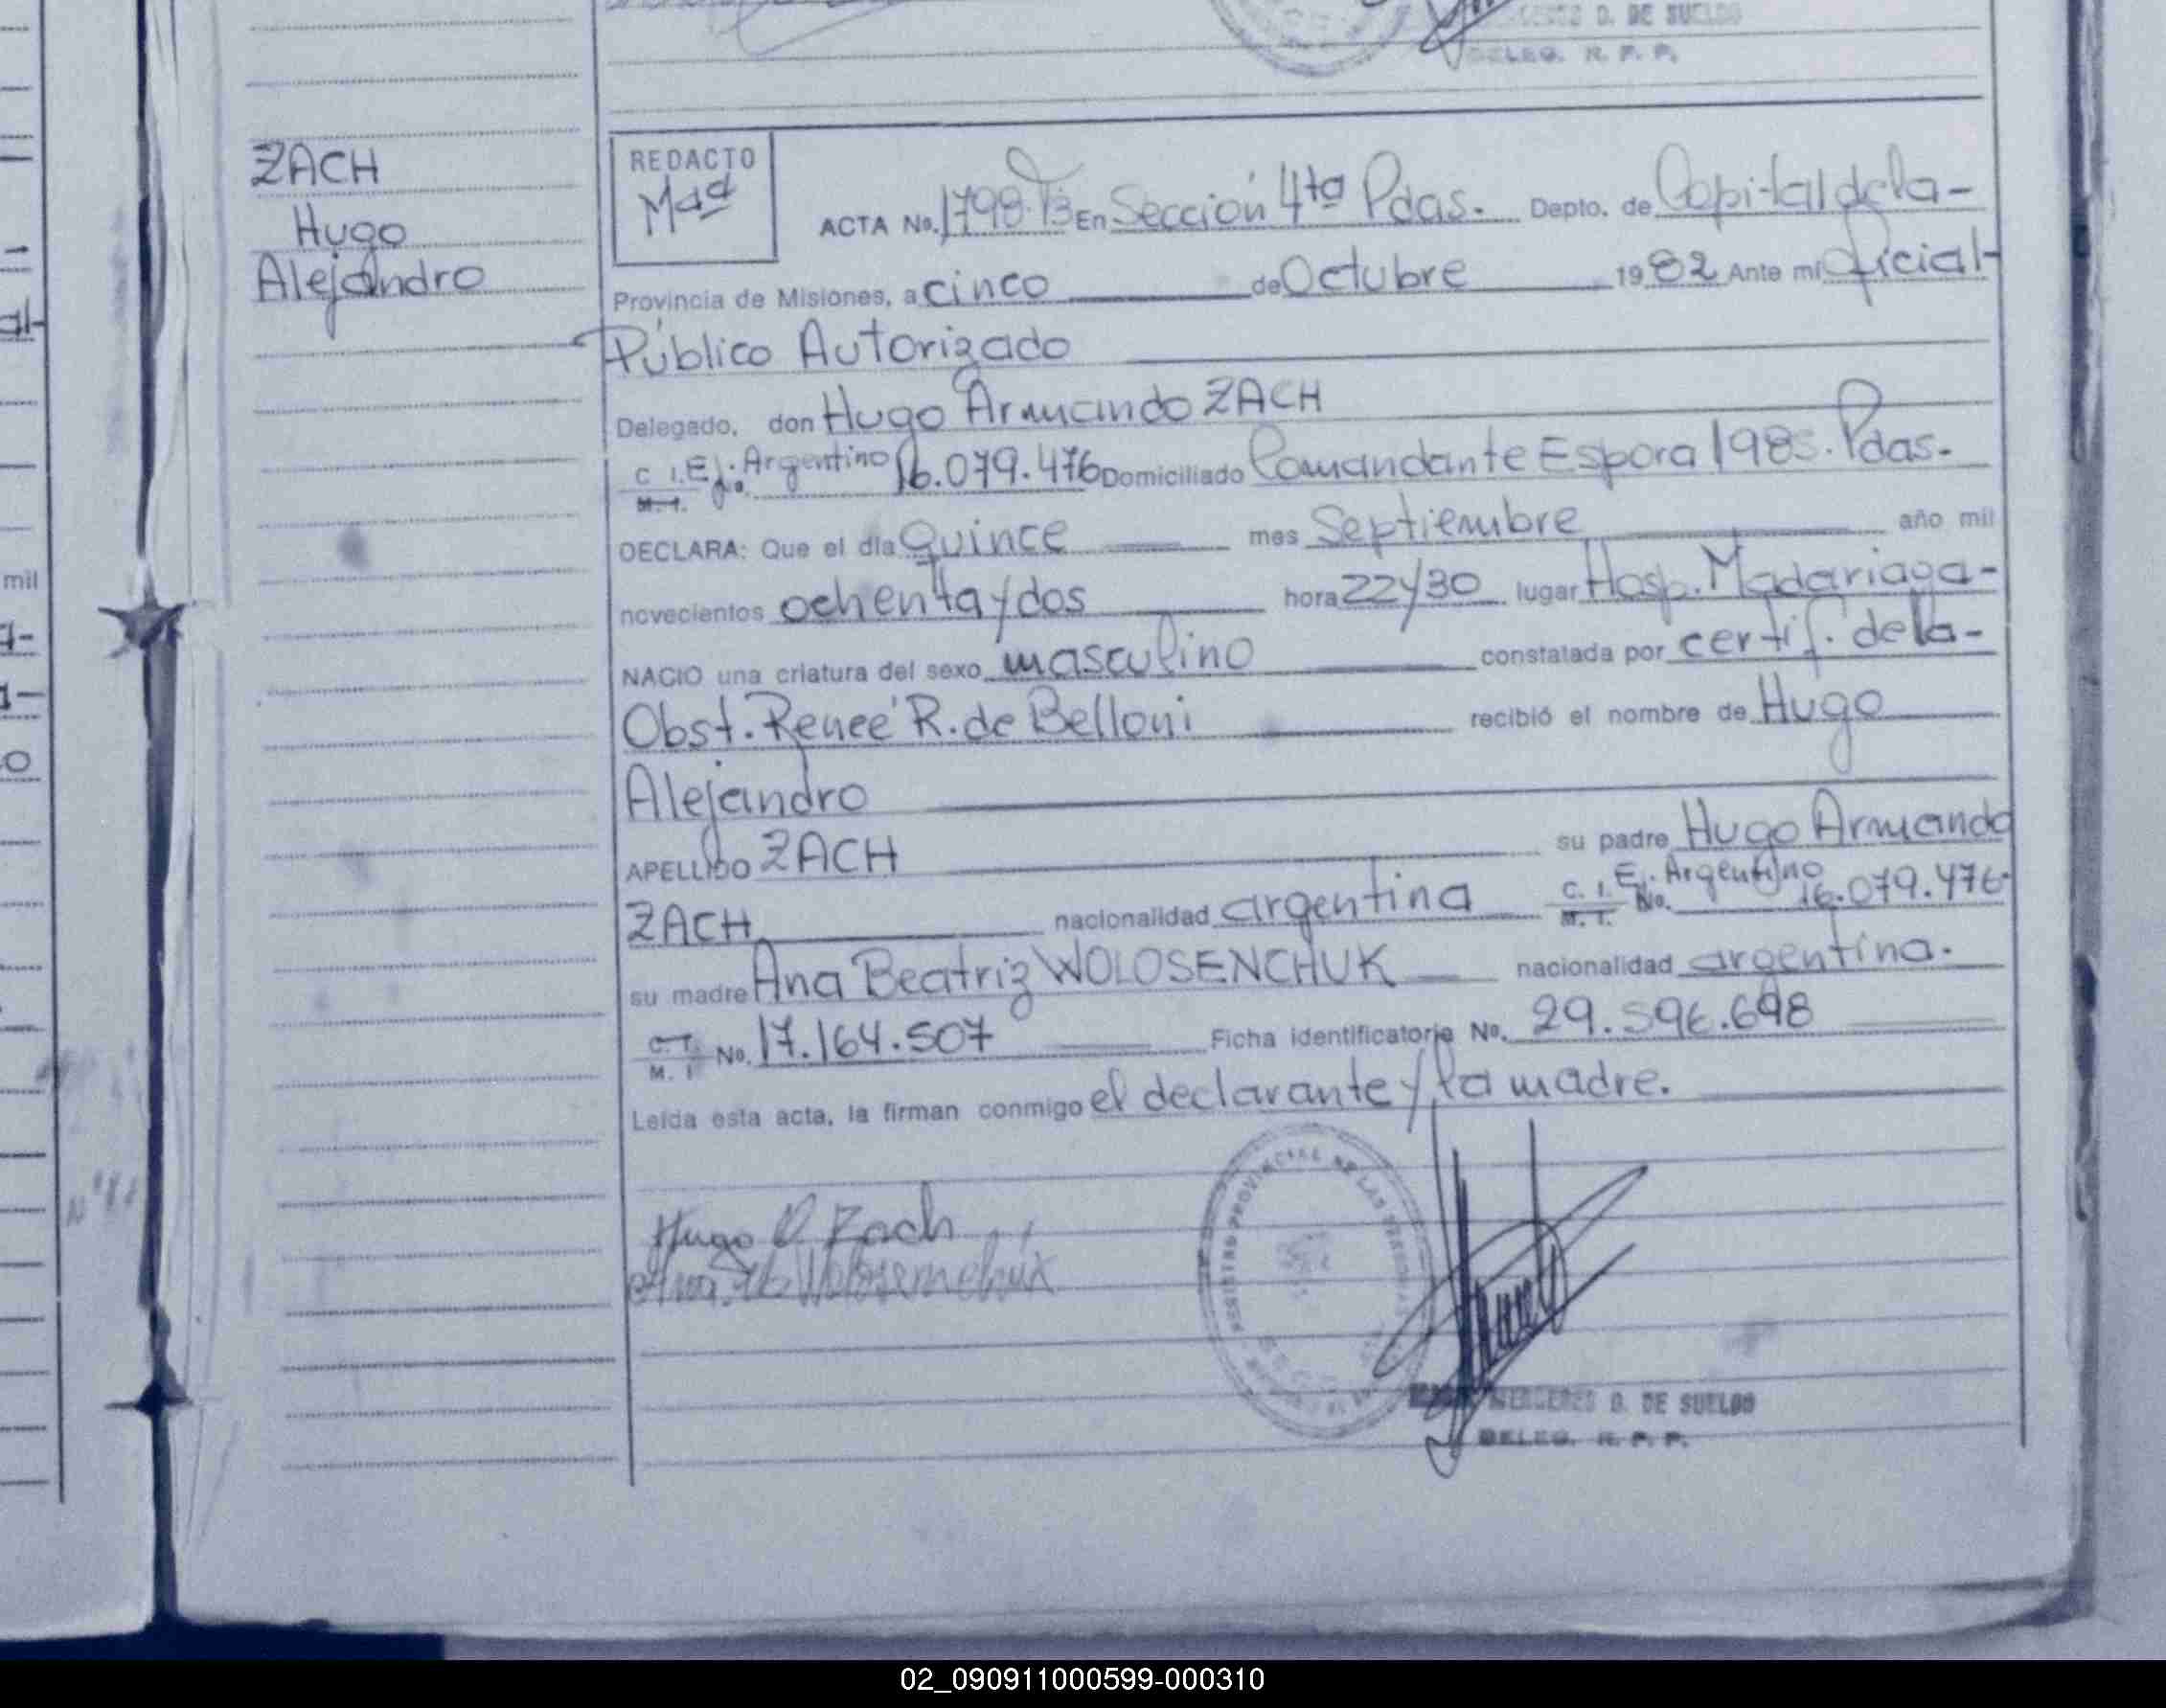 D. DE SUELDO
DELEG. R. P. P.
ZACH
Hugo
Alejandro
REDACTO
ACTA No. 1798.T3 En Sección 4ta Pdas. Depto. de Capital de la-
Provincia de Misiones, a cinco de Octubre 1982 Ante mí Oficial-
Público Autorizado
Delegado, don Hugo Armando ZACH
C. I. Ej. Argentino 16.079.476 Domiciliado Comandante Espora 1985. Pdas.
M. I. No.
DECLARA: Que el día Quince mes Septiembre año mil
novecientos ochenta y dos hora 22y30 lugar Hosp. Madariaga-
NACIO una criatura del sexo masculino constatada por certif. de la-
Obst. Renee R. de Belloni recibió el nombre de Hugo
Alejandro
APELLIDO ZACH su padre Hugo Armando
ZACH nacionalidad argentina C. I. Ej. Argentino No. 16.079.476
M. I.
su madre Ana Beatriz WOLOSENCHUK nacionalidad argentina.
C. I. No. 17.164.507 Ficha identificatoria No. 29.596.698
M. I
Leída esta acta, la firman conmigo el declarante y la madre.
Hugo A Zach
Wolosenchuk
REGISTRO PROVINCIAL DE LAS PERSONAS
MERCEDES D. DE SUELDO
DELEG. R. P. P.
mil
02_090911000599-000310